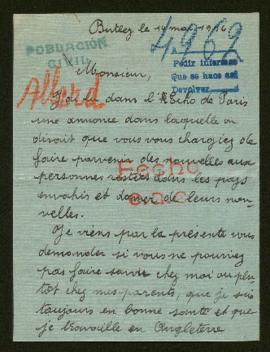 Butley le 14 mai 1916
POBLACIÓN
CIVIL
4962
Pedir informes
Que se hace así
Devolver
Monsieur,
Allard
J'ai lu dans l'Echo de Paris
une annonce dans laquelle on
disait que vous vous chargiez de
faire parvenir des nouvelles aux
personnes restées dans les pays
envahis et donner de leurs nou-
velles.
Fecho
Je viens par la présente vous
demander si vous ne pourriez
pas faire savoir chez moi ou plu-
tôt chez mes parents, que je suis
toujours en bonne santé et que
je travaille en Angleterre